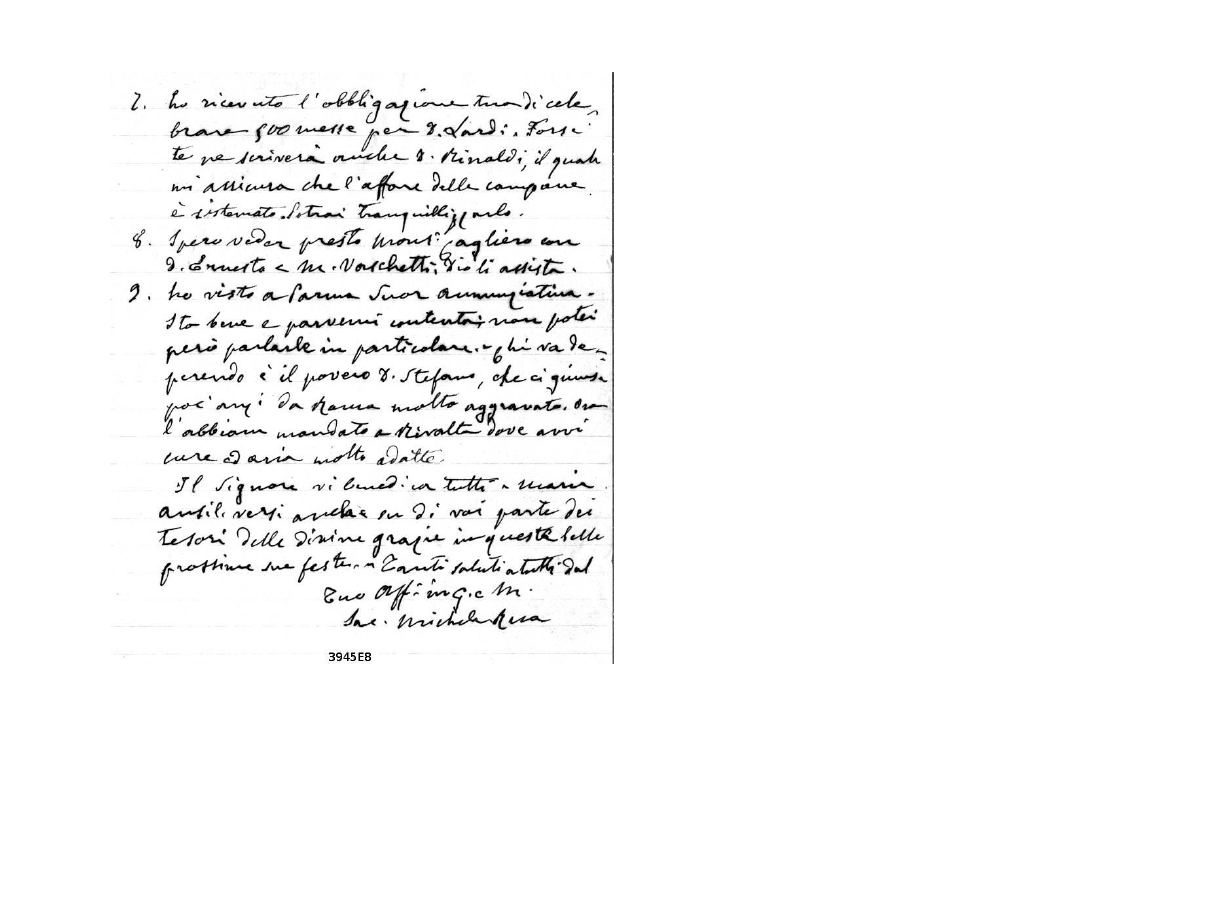 7. ho ricevuto l'obbligazione tua di cele
brare 500 messe per D. Lardi. Forse
te ne scriverà anche D. Rinaldi, il quale
mi assicura che l'affare delle campane
è sistemato. Potrai tranquillizzarlo.
8. Spero veder presto Mons.r Cagliero con
D. Ernesto e M. Vaschetti; Dio li assista.
9. ho visto a Parma Suor Annunziatina.
Sta bene e parvemi contenta; non potei
però parlarle in particolare. - Chi va de-
perendo è il povero D. Stefano, che ci giunse
poc'anzi da Roma molto aggravato. Ora
l'abbiam mandato a Rivalta dove avvi
cure ed aria molto adatte.
Il Signore vi benedica tutti e Maria
ausil. versi anche su di voi parte dei
tesori delle divine grazie in queste belle
prossime sue feste. - Tanti saluti a tutti dal
Tuo Aff. in G. e M.
Sac. Michele Rua
3945E8